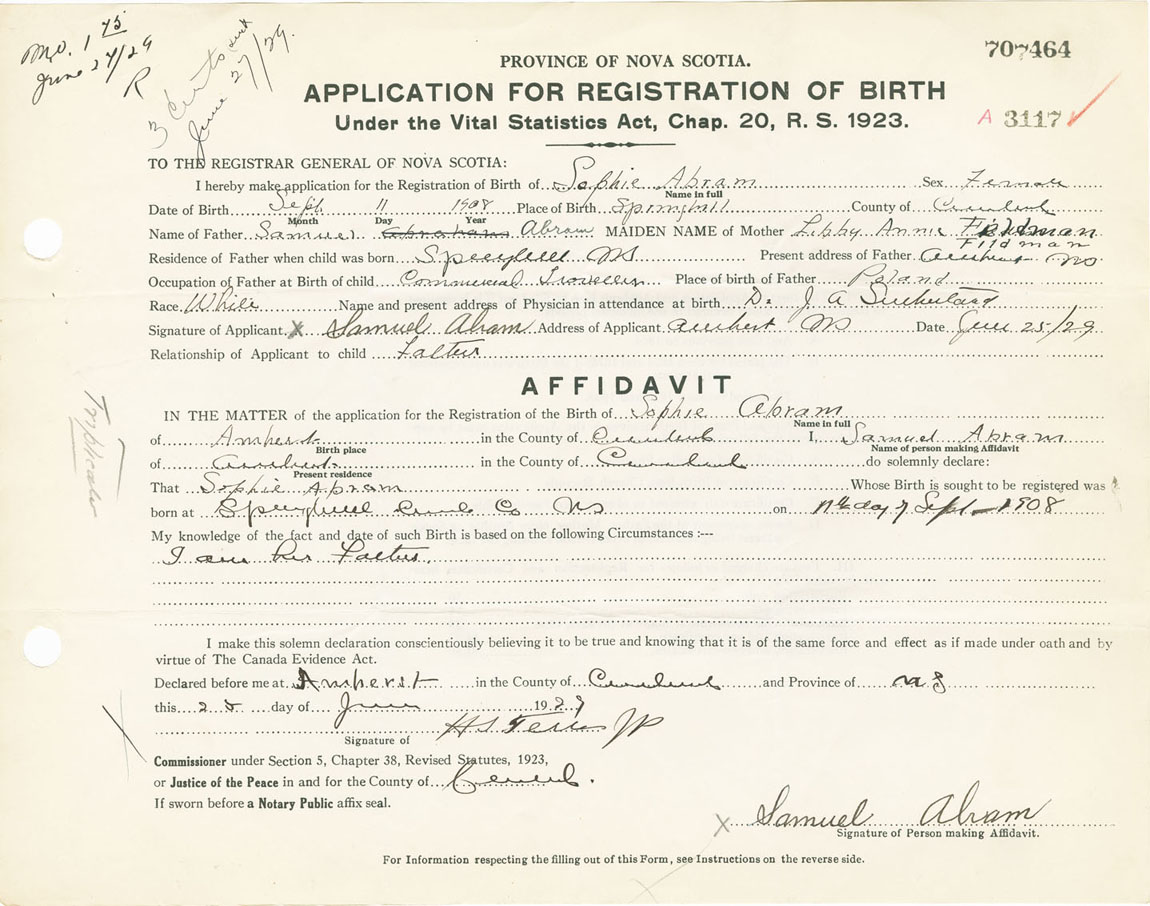 MO. 1 75
June 27/29
R
3 Certs sent
June 27/29.
707464
PROVINCE OF NOVA SCOTIA.
APPLICATION FOR REGISTRATION OF BIRTH
Under the Vital Statistics Act, Chap. 20, R. S. 1923.
A 3117
TO THE REGISTRAR GENERAL OF NOVA SCOTIA:
I hereby make application for the Registration of Birth of Sophie Abram Sex Female
Name in full
Date of Birth Sept 11 1908 Place of Birth Springhill County of Cumberland
Month Day Year
Name of Father Samuel Abrahams Abram MAIDEN NAME of Mother Libby Annie Fildman
Fildman
Residence of Father when child was born Springhill NS Present address of Father Amherst NS
Occupation of Father at Birth of child Commercial Traveller Place of birth of Father Poland
Race White Name and present address of Physician in attendance at birth Dr J A Sutherland
Signature of Applicant X Samuel Abram Address of Applicant Amherst NS Date June 25/29
Relationship of Applicant to child Father
AFFIDAVIT
Triplicate
IN THE MATTER of the application for the Registration of the Birth of Sophie Abram
Name in full
of Amherst in the County of Cumberland I, Samuel Abram
Birth place Name of person making Affidavit
of Amherst in the County of Cumberland do solemnly declare:
Present residence
That Sophie Abram Whose Birth is sought to be registered was
born at Springhill Cumb Co NS on 11th day of Sept 1908
My knowledge of the fact and date of such Birth is based on the following Circumstances :---
I am her Father.
I make this solemn declaration conscientiously believing it to be true and knowing that it is of the same force and effect as if made under oath and by
virtue of The Canada Evidence Act.
Declared before me at Amherst in the County of Cumberland and Province of NS
this 25 day of June 1929
JP
Signature of
Commissioner under Section 5, Chapter 38, Revised Statutes, 1923,
or Justice of the Peace in and for the County of Cumb.
If sworn before a Notary Public affix seal.
X Samuel Abram
Signature of Person making Affidavit.
For Information respecting the filling out of this Form, see Instructions on the reverse side.